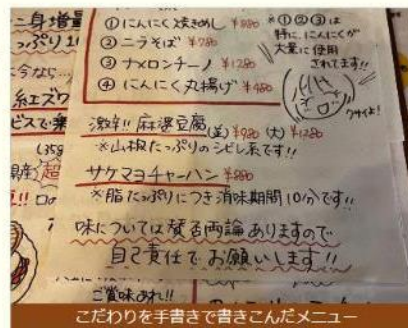 ①にんにく焼きめし ¥880
②ニラそば ¥780
③ナメロンチーノ ¥1280
④にんにく丸揚げ ¥480
※①②③は
特に、にんにくが
大量に使用
されてます!!
クサイよ!
激辛!! 麻婆豆腐(並)¥980 (大)¥1280
※山椒たっぷりのシビレ系です!!
サケマヨチャーハン ¥880
※脂たっぷりにつき消味期間10分です!!
味については賛否両論ありますので
自己責任でお願いします!!
ご賞味あれ!!
こだわりを手書きで書きこんだメニュー